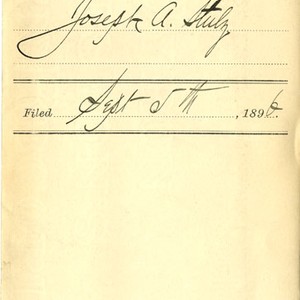 Joseph A. Stulz
Filed Sept 5th, 1896.